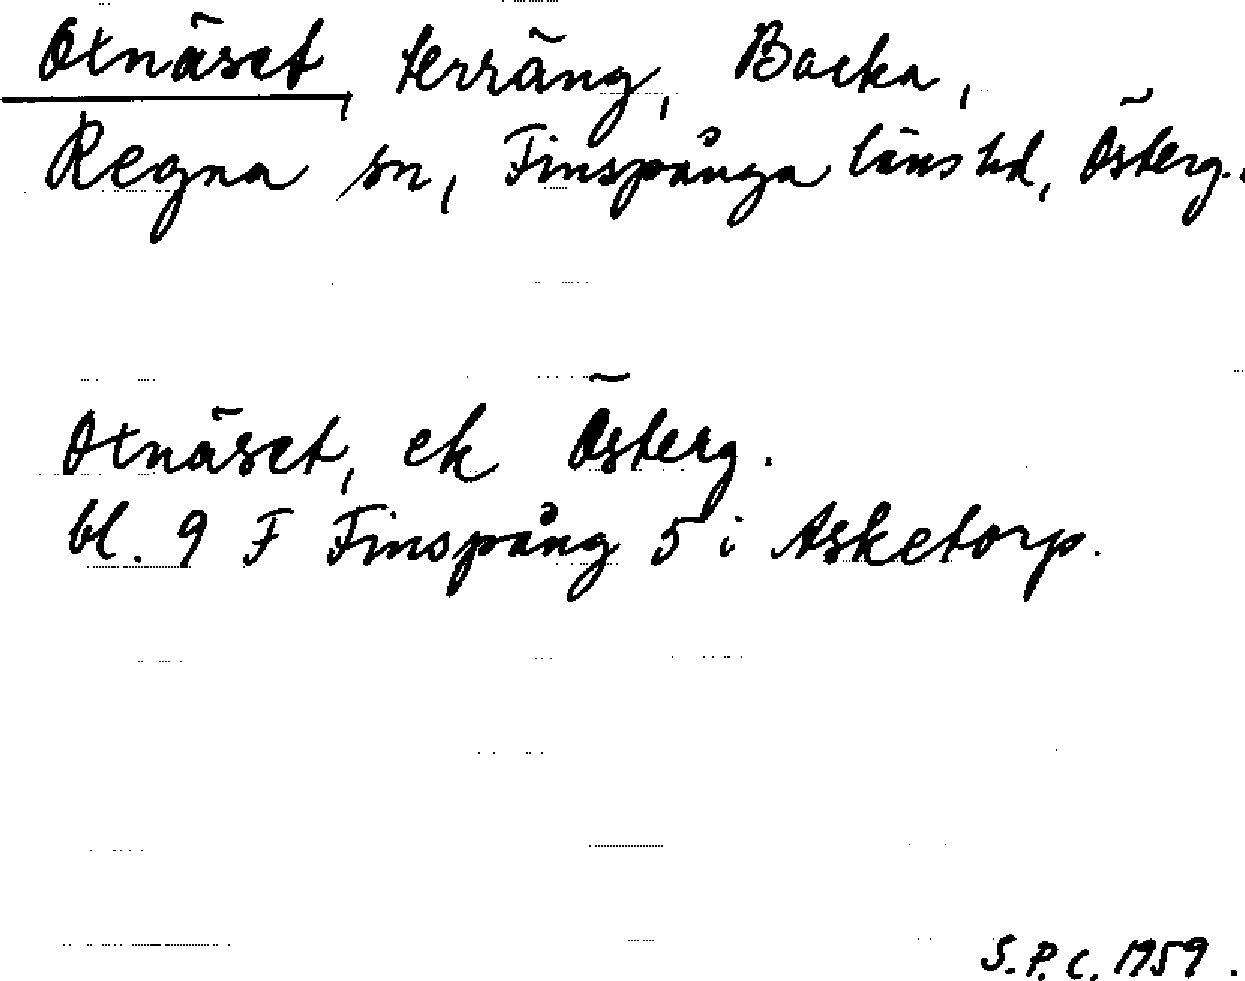 Oxnäset, terräng, Backa,
Regna sn, Finspånga läns hd, Österg.
Oxnäset, ek Österg.
bl. 9 F Finspång 5 i Asketorp.
S.P.C. 1959.